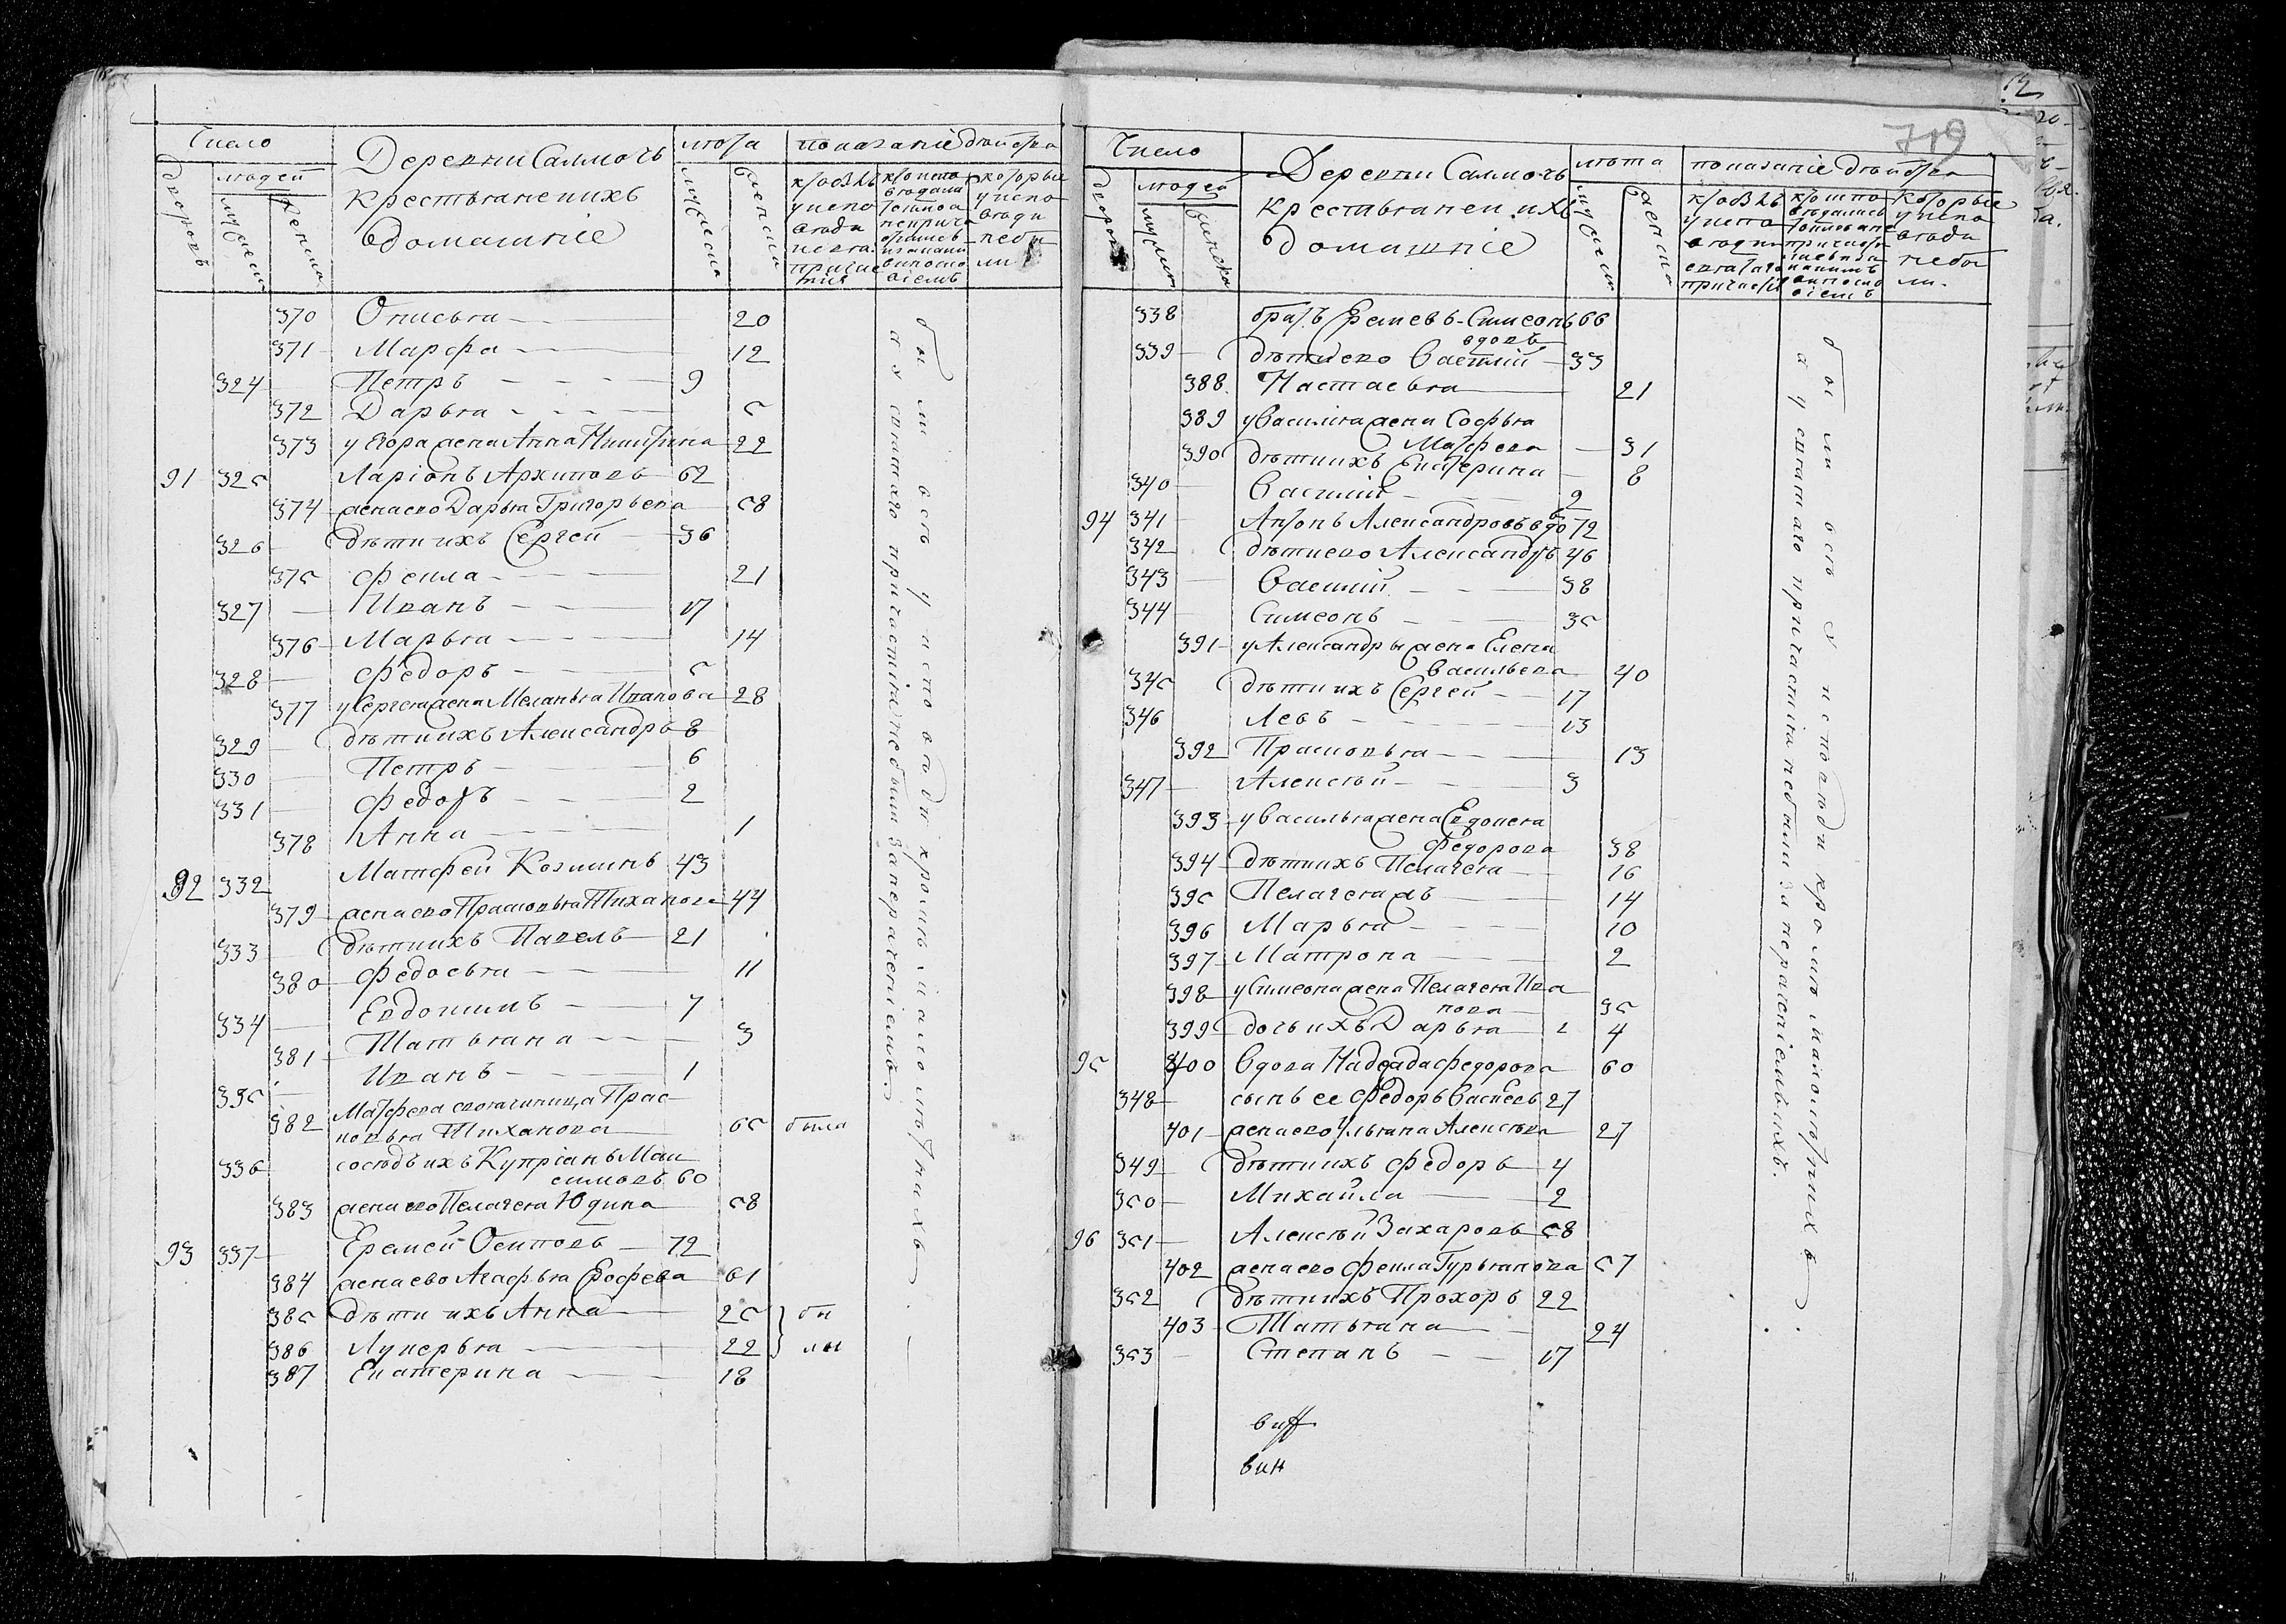 Число
Деревни Салмочь
лѣта
показанїе дѣйства
дворовъ
людей
крестьяне ихъ
домашнїе
мужеска
женска
которые
не бы
ли
370 Ониська 20
371 Марфа 12
324 Петръ 9
372 Дарья 5
373 у Егора жена Анна Никитина 22
91 325 Ларїонъ Архиповъ 62
374 жена ево Дарья Григорьева 58
326 дѣти ихъ Сергей 36
375 Фекла 21
327 Иванъ 17
376 Марья 14
328 Федоръ 5
377 у Сергея жена Меланья Иванова 28
329 дѣти ихъ Александръ 8
330 Петръ 6
331 Федоръ 2
378 Анна 1
92 332 Матфей Козминъ 43
379 жена ево Прасковья Тиханова 44
333 дѣти ихъ Павелъ 21
380 Федосья 11
334 Евдокимъ 7
381 Татьяна 3
335 Иванъ 1
Матфева своячиница Прас
382 ковья Тиханова 65 была
336 сосѣдъ ихъ Купрїанъ Мак
симовъ 60
383 жена ево Пелагея Юдина 58
93 337 Еремей Осиповъ 72
384 жена ево Агафья Ерофева 61
385 дѣти ихъ Анна 25 бы
386 Лукерья 22 ли
387 Екатерина 18
были всѣ у исповѣди кромѣ малолѣтныхъ
а у святаго причастїя не были за нераченїемъ
719
Число
Деревни Салмочь
лѣта
показанїе дѣйства
дворовъ
людей
крестьяне и ихъ
домашнїе
мужеска
женска
которые
у испо
вѣди
не бы
ли
338 братъ Еремевъ Симеонъ 66
вдовъ
339 дѣти ево Василїй 33
388 Настасья 21
389 у Василїя жена Софья
Матфева 31
390 дѣти ихъ Екатерина 8
340 Василїй 2
94 341 Антонъ Александровъ вдо 72
342 дѣти ево Александръ 46
343 Василїй 38
344 Симеонъ 35
391 у Александры жена Елена
Васильева 40
345 дѣти ихъ Сергей 17
346 Левъ 13
392 Прасковья 13
347 Алексѣй 3
393 у Василья жена Евдокея
Федорова 38
394 дѣти ихъ Пелагея 16
395 Пелагея жъ 14
396 Марья 10
397 Матрона 2
398 у Симеона жена Пелагея Ива
нова 35
399 дочь ихъ Дарья 4
95 400 вдова Надежда Федорова 60
348 сынъ ее Федоръ Васиевъ 27
401 жена ево Ульяна Алексѣва 27
349 дѣти ихъ Федоръ 4
350 Михайла 2
96 351 Алексѣй Захаровъ 58
402 жена ево Фекла Гурьянова 57
352 дѣти ихъ Прохоръ 22
403 Татьяна 24
353 Степанъ 17
были всѣ у исповѣди кромѣ малолѣтныхъ
а у святаго причастїя не были за нераченїемъ ихъ